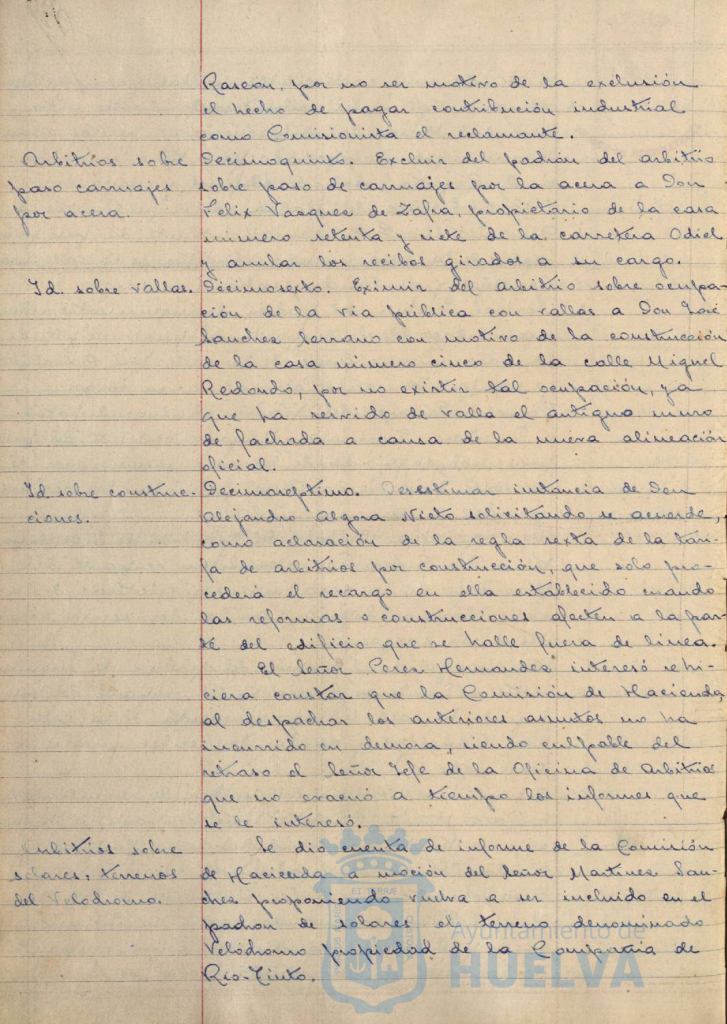 Rascón, por no ser motivo de la exclusión
el hecho de pagar contribución industrial
como Comisionista el reclamante.
Arbitrios sobre
paso carruajes
por acera.
Decimoquinto. Excluir del padrón del arbitrio
sobre paso de carruajes por la acera a Don
Felix Vazquez de Zafra, propietario de la casa
número setenta y siete de la carretera Odiel
y anular los recibos girados a su cargo.
Id. sobre vallas.
Décimosexto. Eximir del arbitrio sobre ocupa-
ción de la vía pública con vallas a Don José
Sanchez Serrano con motivo de la construcción
de la casa número cinco de la calle Miguel
Redondo, por no existir tal ocupación, ya
que ha servido de valla el antiguo muro
de fachada a causa de la nueva alineación
oficial.
Id. sobre construc-
ciones.
Decimoséptimo. Desestimar instancia de Don
Alejandro Algora Nieto solicitando se acuerde,
como aclaración de la regla sexta de la tari-
fa de arbitrios por construcción, que solo pro-
cederá el recargo en ella establecido cuando
las reformas o construcciones afecten a la par-
te del edificio que se halle fuera de linea.
El Señor Perez Hernandez interesó se hi-
ciera constar que la Comisión de Hacienda,
al despachar los anteriores asuntos no ha
incurrido en demora, siendo culpable del
retraso el Señor Jefe de la Oficina de Arbitrios
que no evacuó a tiempo los informes que
se le interesó.
Arbitrios sobre
solares: terrenos
del Velódromo.
Se dio cuenta de informe de la Comisión
de Hacienda a moción del Señor Martinez San-
chez proponiendo vuelva a ser incluido en el
padron de solares el terreno denominado
Velódromo propiedad de la Compañia de
Rio-Tinto.
Ayuntamiento de
HUELVA